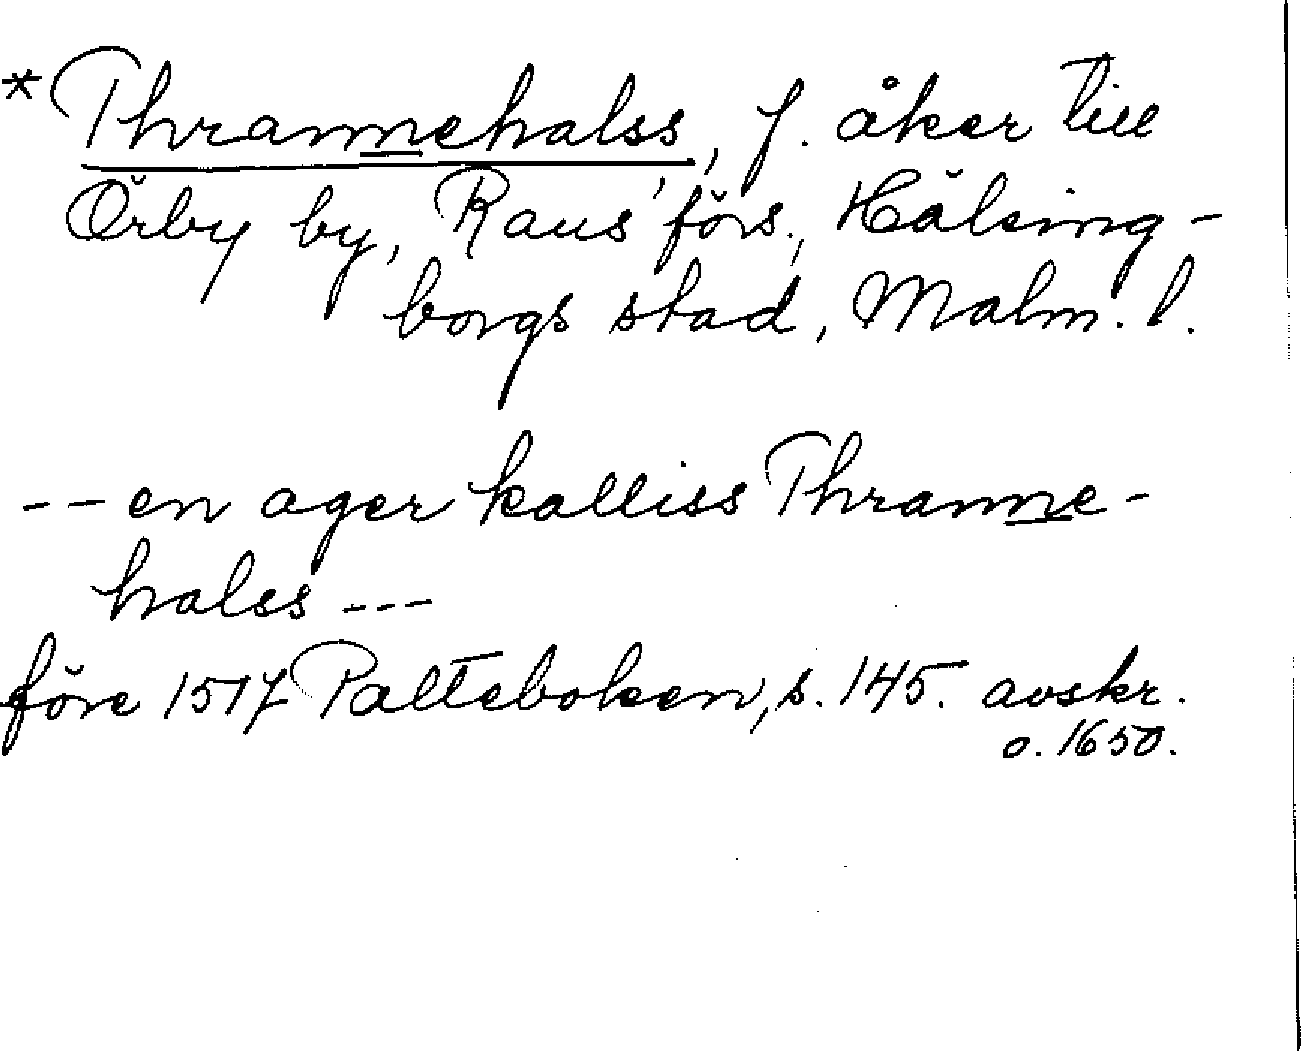 *Thrannehalss, f. åker till
Örby by, Raus' förs., Hälsing-
borgs stad, Malm. l.
-- en ager kalliss Thranne-
halss ---
före 1517 Palteboken, s. 145. avskr.
o. 1650.